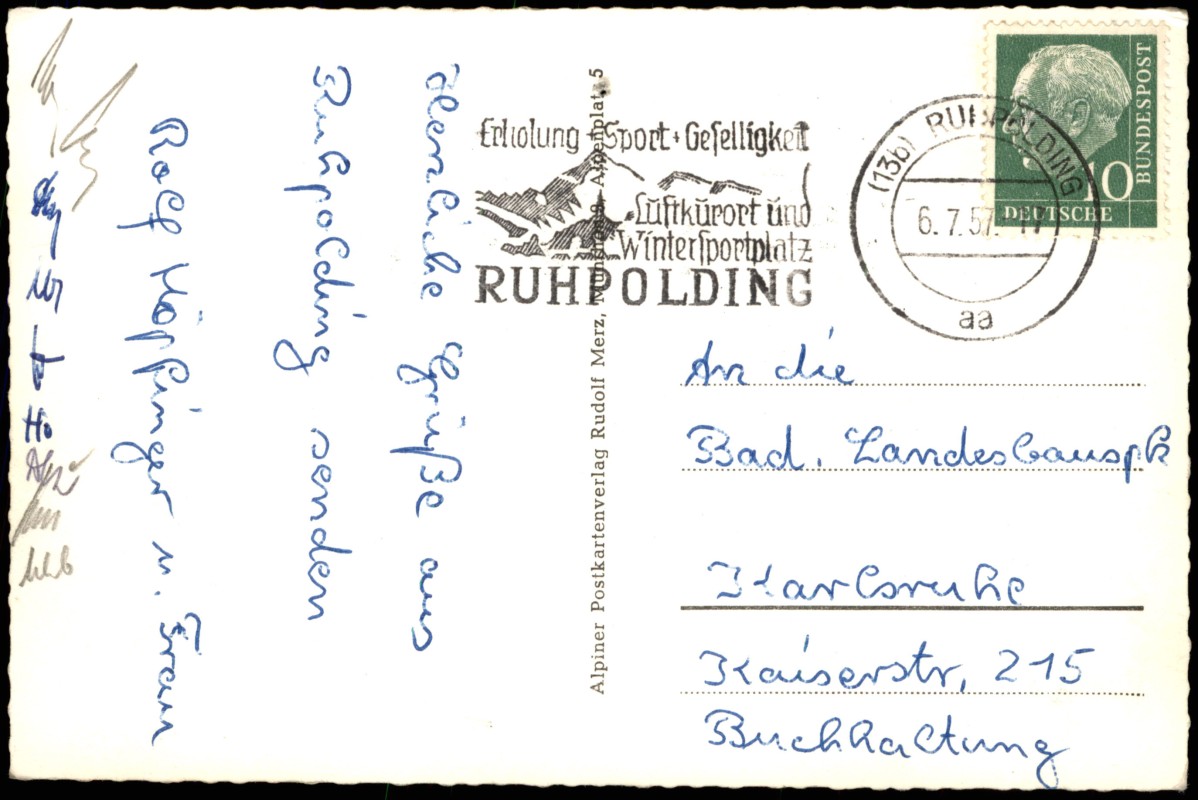 Herzliche Grüße aus
Ruhpolding senden
Rolf Höpfinger u. Frau
Erholung + Sport + Geselligkeit
Luftkurort und
Wintersportplatz
RUHPOLDING
(13b) RUHPOLDING
6.7.57. 17
aa
BUNDESPOST
10
DEUTSCHE
Alpiner Postkartenverlag Rudolf Merz, München, Alpenplatz 5
An die
Bad. Landesbauspk
Karlsruhe
Kaiserstr, 215
Buchhaltung